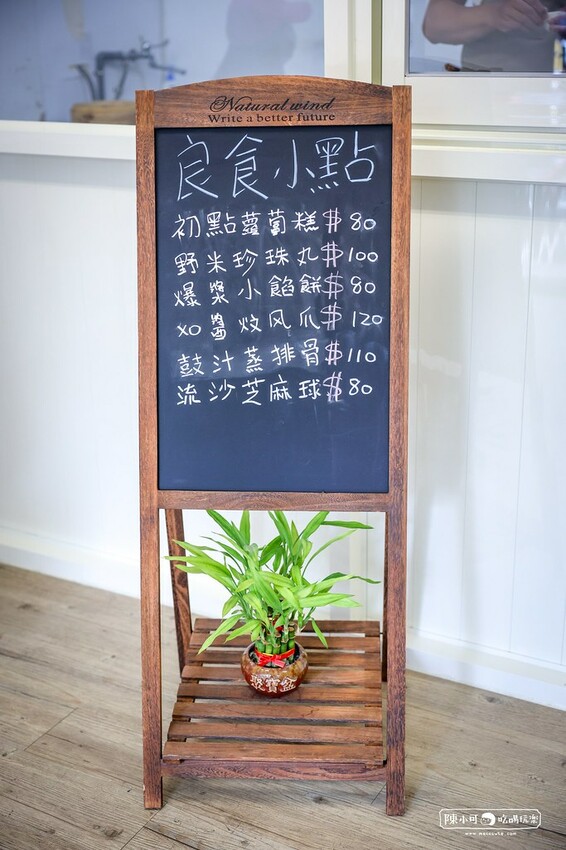 Natural wind
Write a better future
良食小點
初點蘿蔔糕$80
野米珍珠丸$100
爆漿小餡餅$80
XO醬炆风爪$120
鼓汁蒸排骨$110
流沙芝麻球$80
聚寶盆
陳小可 吃喝玩樂